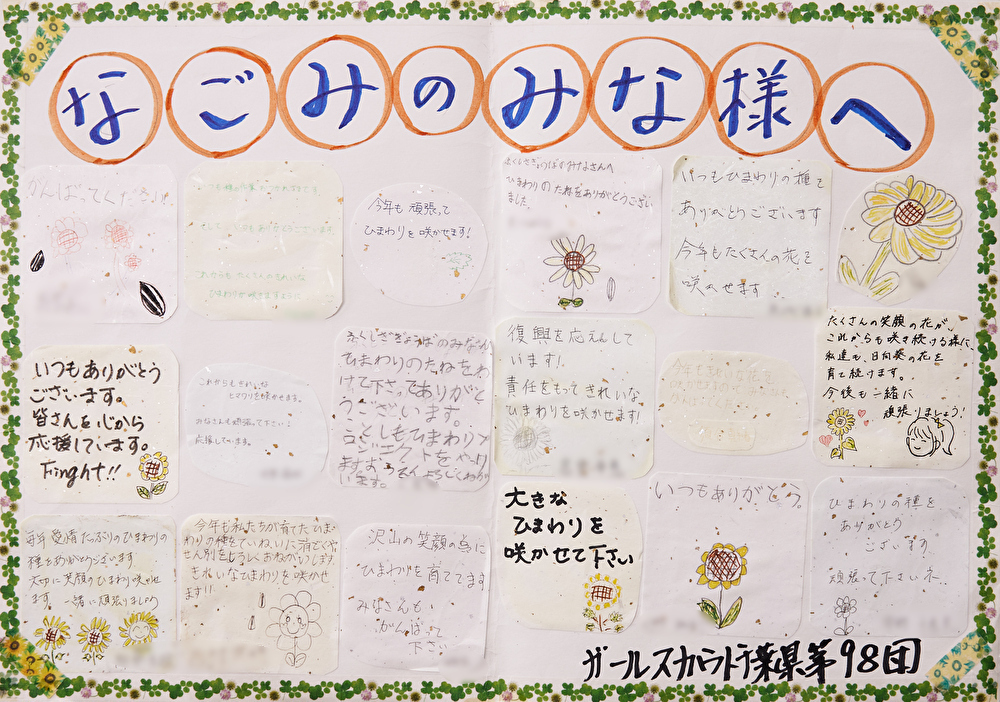 なごみのみな様へ
がんばってください。
今年も頑張って
ひまわりを咲かせます!
ふくしさぎょうばのみなさんへ
ひまわりのたねをありがとうござい
ました。
いつもひまわりの種を
ありがとうございます
今年もたくさんの花を
咲かせます
いつもありがとう
ございます。
皆さんを心から
応援しています。
Finght!!
これからもきれいな
ひまわりを咲かせます。
みなさんも頑張って下さい!
応援しています。
ふくしさぎょうばのみなさん
ひまわりのたねをわ
けて下さってありがと
うございます。
ことしもひまわりプ
ロジェクトをやり
ます
復興を応えんして
います!
責任をもってきれいな
ひまわりを咲かせます!
たくさんの笑顔の花が、
これからも咲き続ける様に、
私達も、日向葵の花を
育て続けます。
今後も一緒に
頑張りましょう!
毎年愛情たっぷりのひまわりの
種をありがとうございます
大切に笑顔のひまわり咲かせ
ます。一緒に頑張りましょう
今年も私たちが育てたひま
わりの種をていねいに
きれいなひまわりを咲かせ
ます!!
沢山の笑顔の為に
ひまわりを育ててます
みなさんも
がんばって
下さい
大きな
ひまわりを
咲かせて下さい
いつもありがとう。
ひまわりの種を
ありがとう
ございます
頑張って下さいネ..
ガールスカウト千葉県第98団